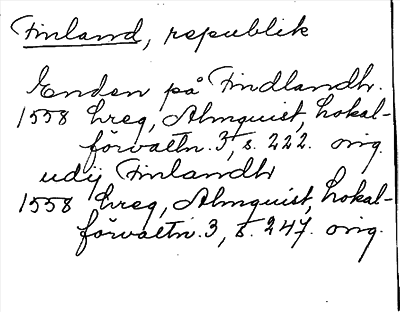 Finland, republik
Enden på Findlandh.
1558 hreg, Almquist, Lokal-
förvaltn. 3, s. 222. orig.
udij Finlandh
1558 hreg, Almquist, Lokal-
förvaltn. 3, s. 247. orig.